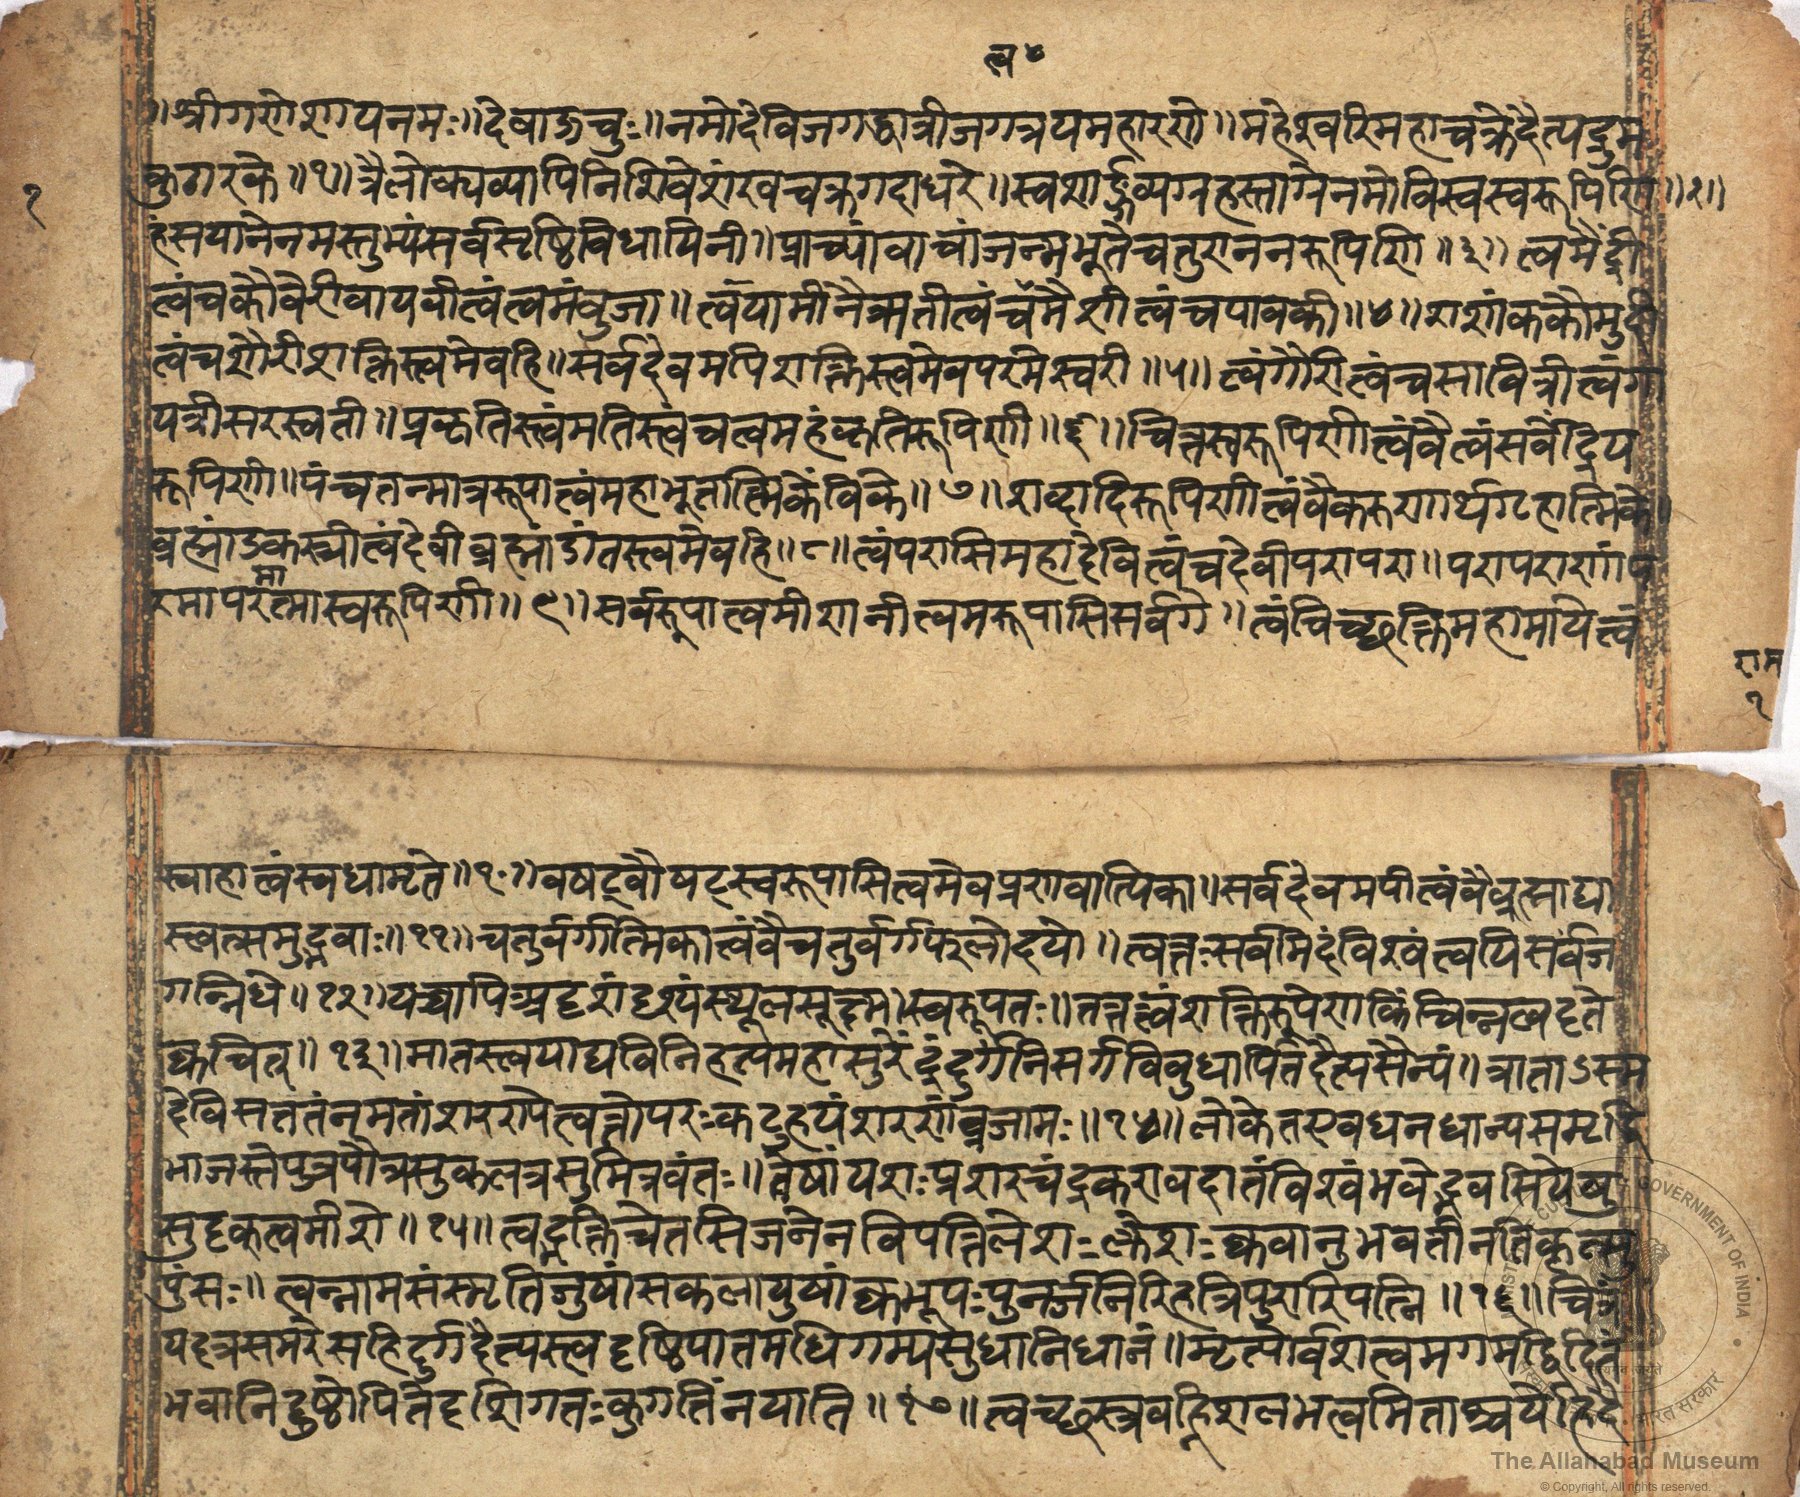 त्व४
॥श्रीगणेशायनमः॥देवाऊचुः॥नमोदेविजगद्धात्रीजगत्त्रयमहारणे॥महेश्वरिमहाचक्रेदैत्यद्रुम
कुठारके॥१॥त्रैलोक्यव्यापिनिशिवेशंखचक्रगदाधरे॥स्वशार्ङ्गव्यग्रहस्ताग्रेनमोविस्वस्वरूपिणि॥२॥
१
हंसयानेनमस्तुभ्यंसर्वसृष्टिविधायिनी॥प्राच्यांवाचांजन्मभूतेचतुराननरूपिणि॥३॥त्वमैंद्री
त्वंचकौवैरीवायवीत्वंत्वमंवुजा॥त्वंयामीनैऋतीत्वंचंमैशीत्वंचपावकी॥४॥शशांककौमुदी
त्वंचशौरीशक्तिस्त्वमेवहि॥सर्वदेवमपिशक्तिस्त्वमेवपरमेस्वरी॥५॥त्वंगौरीत्वंचसावित्रीत्वंगा
यत्रीसरस्वती॥प्रकृतिस्त्वंमतिस्त्वंचत्वमहंकृतिरूपिणी॥६॥चित्तस्वरूपिणीत्वंवैत्वंसर्वेंद्रिय
रूपिणी॥पंचतन्मात्ररूपात्वंमहाभूतात्मिकेंविके॥७॥शब्दादिरूपिणीत्वंवैकरुणार्थगृहात्मिके॥
व्रह्मांडकस्त्रीत्वंदेवीव्रह्मांडांतस्त्वमेवहि॥८॥त्वंपरासिमहादेवित्वंचदेवीपरापरा॥परापराणांप
रमापरमात्मास्वरूपिणी॥९॥सर्वरूपात्वमीशानीत्वमरूपासिसर्वगे॥त्वंचिच्छक्तिमहामायेत्वं
राम
१
स्वाहात्वंस्वधामृते॥१०॥वषट्वौषट्स्वरूपासित्वमेवप्रणवात्मिका॥सर्वदेवमयीत्वंवैव्रह्माद्या
स्त्वत्समुद्भवाः॥११॥चतुर्वर्गात्मिकात्वंवैचतुर्वर्गफलोदये॥त्वत्तःसर्वमिदंविश्वंत्वयिसर्वंज
गन्निधे॥१२॥यच्चापिअदृशंदृश्यंस्थूलसूक्ष्मस्वरूपतः॥तत्रत्वंशक्तिरूपेणकिंचिन्नत्वदृते
क्वचित्॥१३॥मातस्त्वयाद्यविनिहत्यमहासुरेंद्रंदुर्गंनिसर्गविवुधार्पितदैत्यसैन्यं॥त्राताऽस्म
देविसततंनमतांशरण्येत्वत्तोपरःकदुहयंशरणंव्रजामः॥१४॥लोकेतएवधनधान्यसमृद्धि
भाजस्तेपुत्रपौत्रसुकलत्रसुमित्रवंतः॥तेषांयशःप्रशरचंद्रकरावदातंविश्वंभवेद्भवसियेषु
सुदृक्त्वमीशे॥१५॥त्वद्भक्तिचेतसिजनेनविपत्तिलेशःक्लेशःक्ववानुभवतीनतिकृत्सु
पुंसः॥त्वन्नामसंस्मृतिजुषांसकलायुषांक्वभूयःपुनर्जनिरिहत्रिपुरारिपत्नि॥१६॥चित्रं
यदत्रसमरेसहिदुर्गदैत्यस्त्वदृष्टिपातमधिगम्यसुधानिधानं॥मृत्योर्वशत्वमगमद्विदितं
भवानिदुष्टोपितेदृशिगतःकुगतिंनयाति॥१७॥त्वच्छस्त्रवह्निशलभत्वमिताश्चर्यहिदै
The Allahabad Museum
© Copyright, All rights reserved.